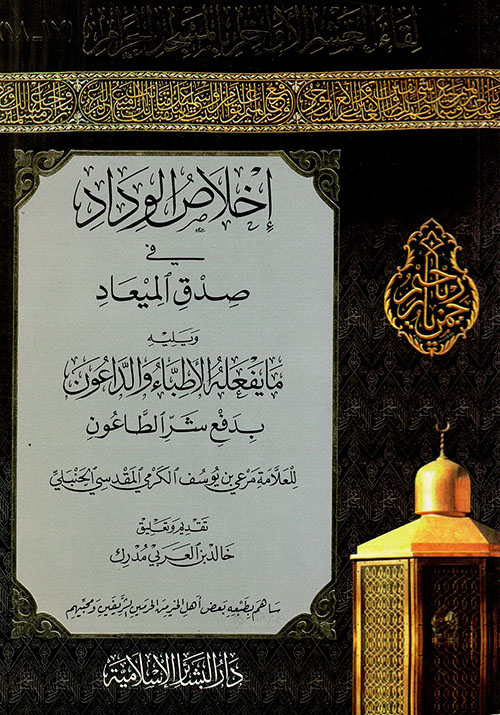 لقاء العشر الأواخر بالمسجد الحرام (١٧-١٨)
إخلاص الوداد
في
صدق الميعاد
ويليه
ما يفعله الأطباء والداعون
بدفع شر الطاعون
للعلامة مرعي بن يوسف الكرمي المقدسي الحنبلي
تقديم وتعليق
خالد بن العربي مدرك
ساهم بطبعه بعض أهل الخير من الحرمين الشريفين ومحبيهم
دار البشائر الإسلامية